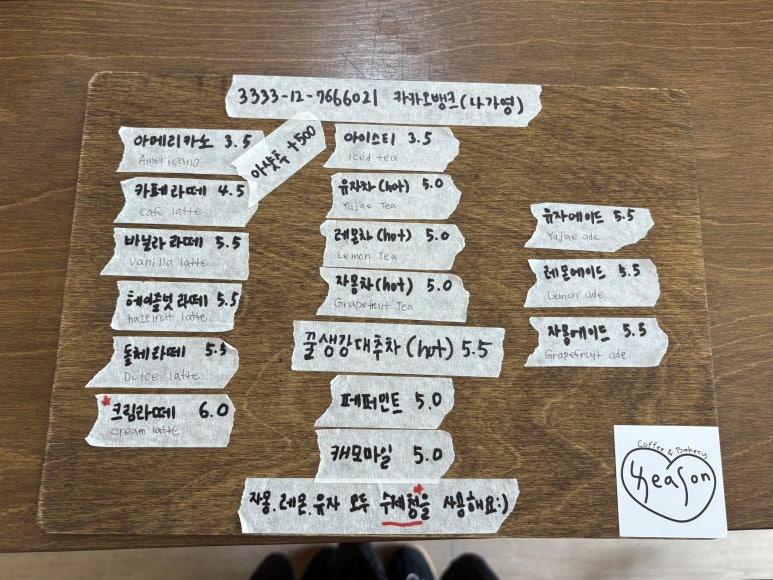 3333-12-7666021 카카오뱅크(나가영)
아메리카노 3.5
Americano
아샷추 +500
카페라떼 4.5
cafe latte
바닐라 라떼 5.5
vanilla latte
헤이즐넛 라떼 5.5
hazelnut latte
돌체라떼 5.5
Dolce latte
*크림라떼 6.0
cream latte
아이스티 3.5
Iced tea
유자차(hot) 5.0
Yujae Tea
레몬차(hot) 5.0
Lemon Tea
자몽차(hot) 5.0
Grapefruit Tea
꿀생강대추차(hot) 5.5
페퍼민트 5.0
캐모마일 5.0
유자에이드 5.5
Yujae ade
레몬에이드 5.5
Lemon ade
자몽에이드 5.5
Grapefruit ade
자몽.레몬.유자 모두 수제청*을 사용해요:)
Coffee & Bakery
4eason